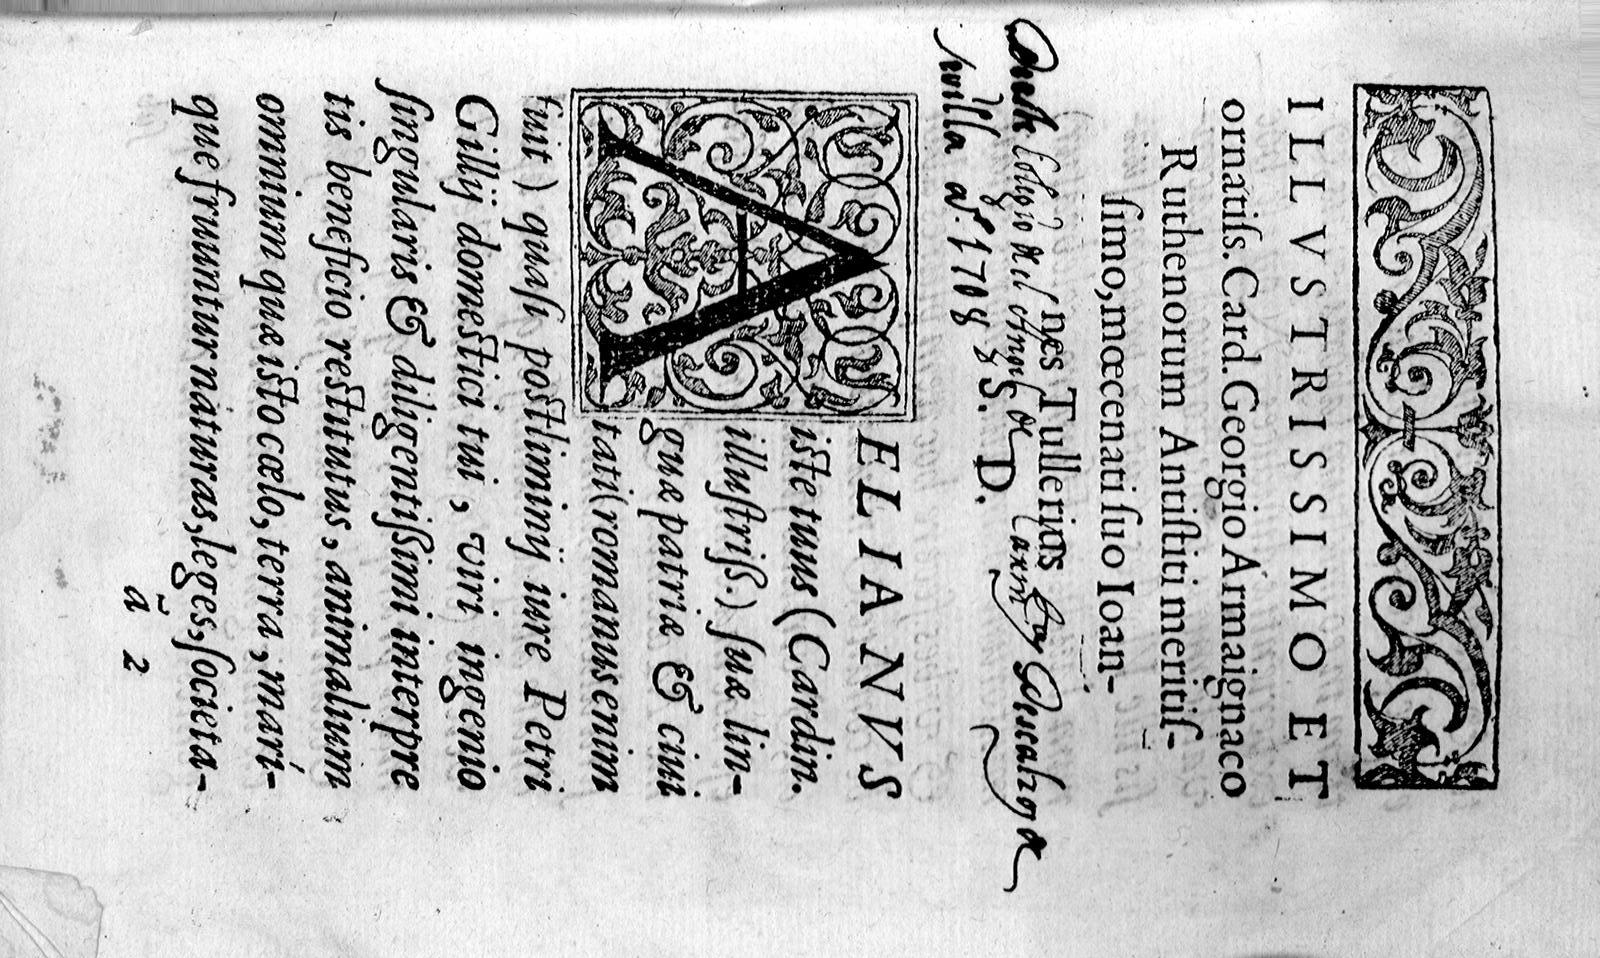 ILLVSTRISSIMO ET
ornatiſs. Card. Georgio Armaignaco
Ruthenorum Antiſtiti meritiſ-
ſimo, mœcenati ſuo Ioan-
nes Tullerius
S. D.
del Angel de
de 1708
AELIANVS
iſte tuus (Cardin.
illuſtriß.) ſuæ lin-
guæ patriæ & ciui
tati (romanus enim
fuit) quaſi poſtliminij iure Petri
Gillij domeſtici tui, viri ingenio
ſingularis & diligentißimi interpre
tis beneficio reſtitutus, animalium
omnium quæ iſto cælo, terra, mari-
que fruuntur naturas, leges, ſocieta-
ã 2